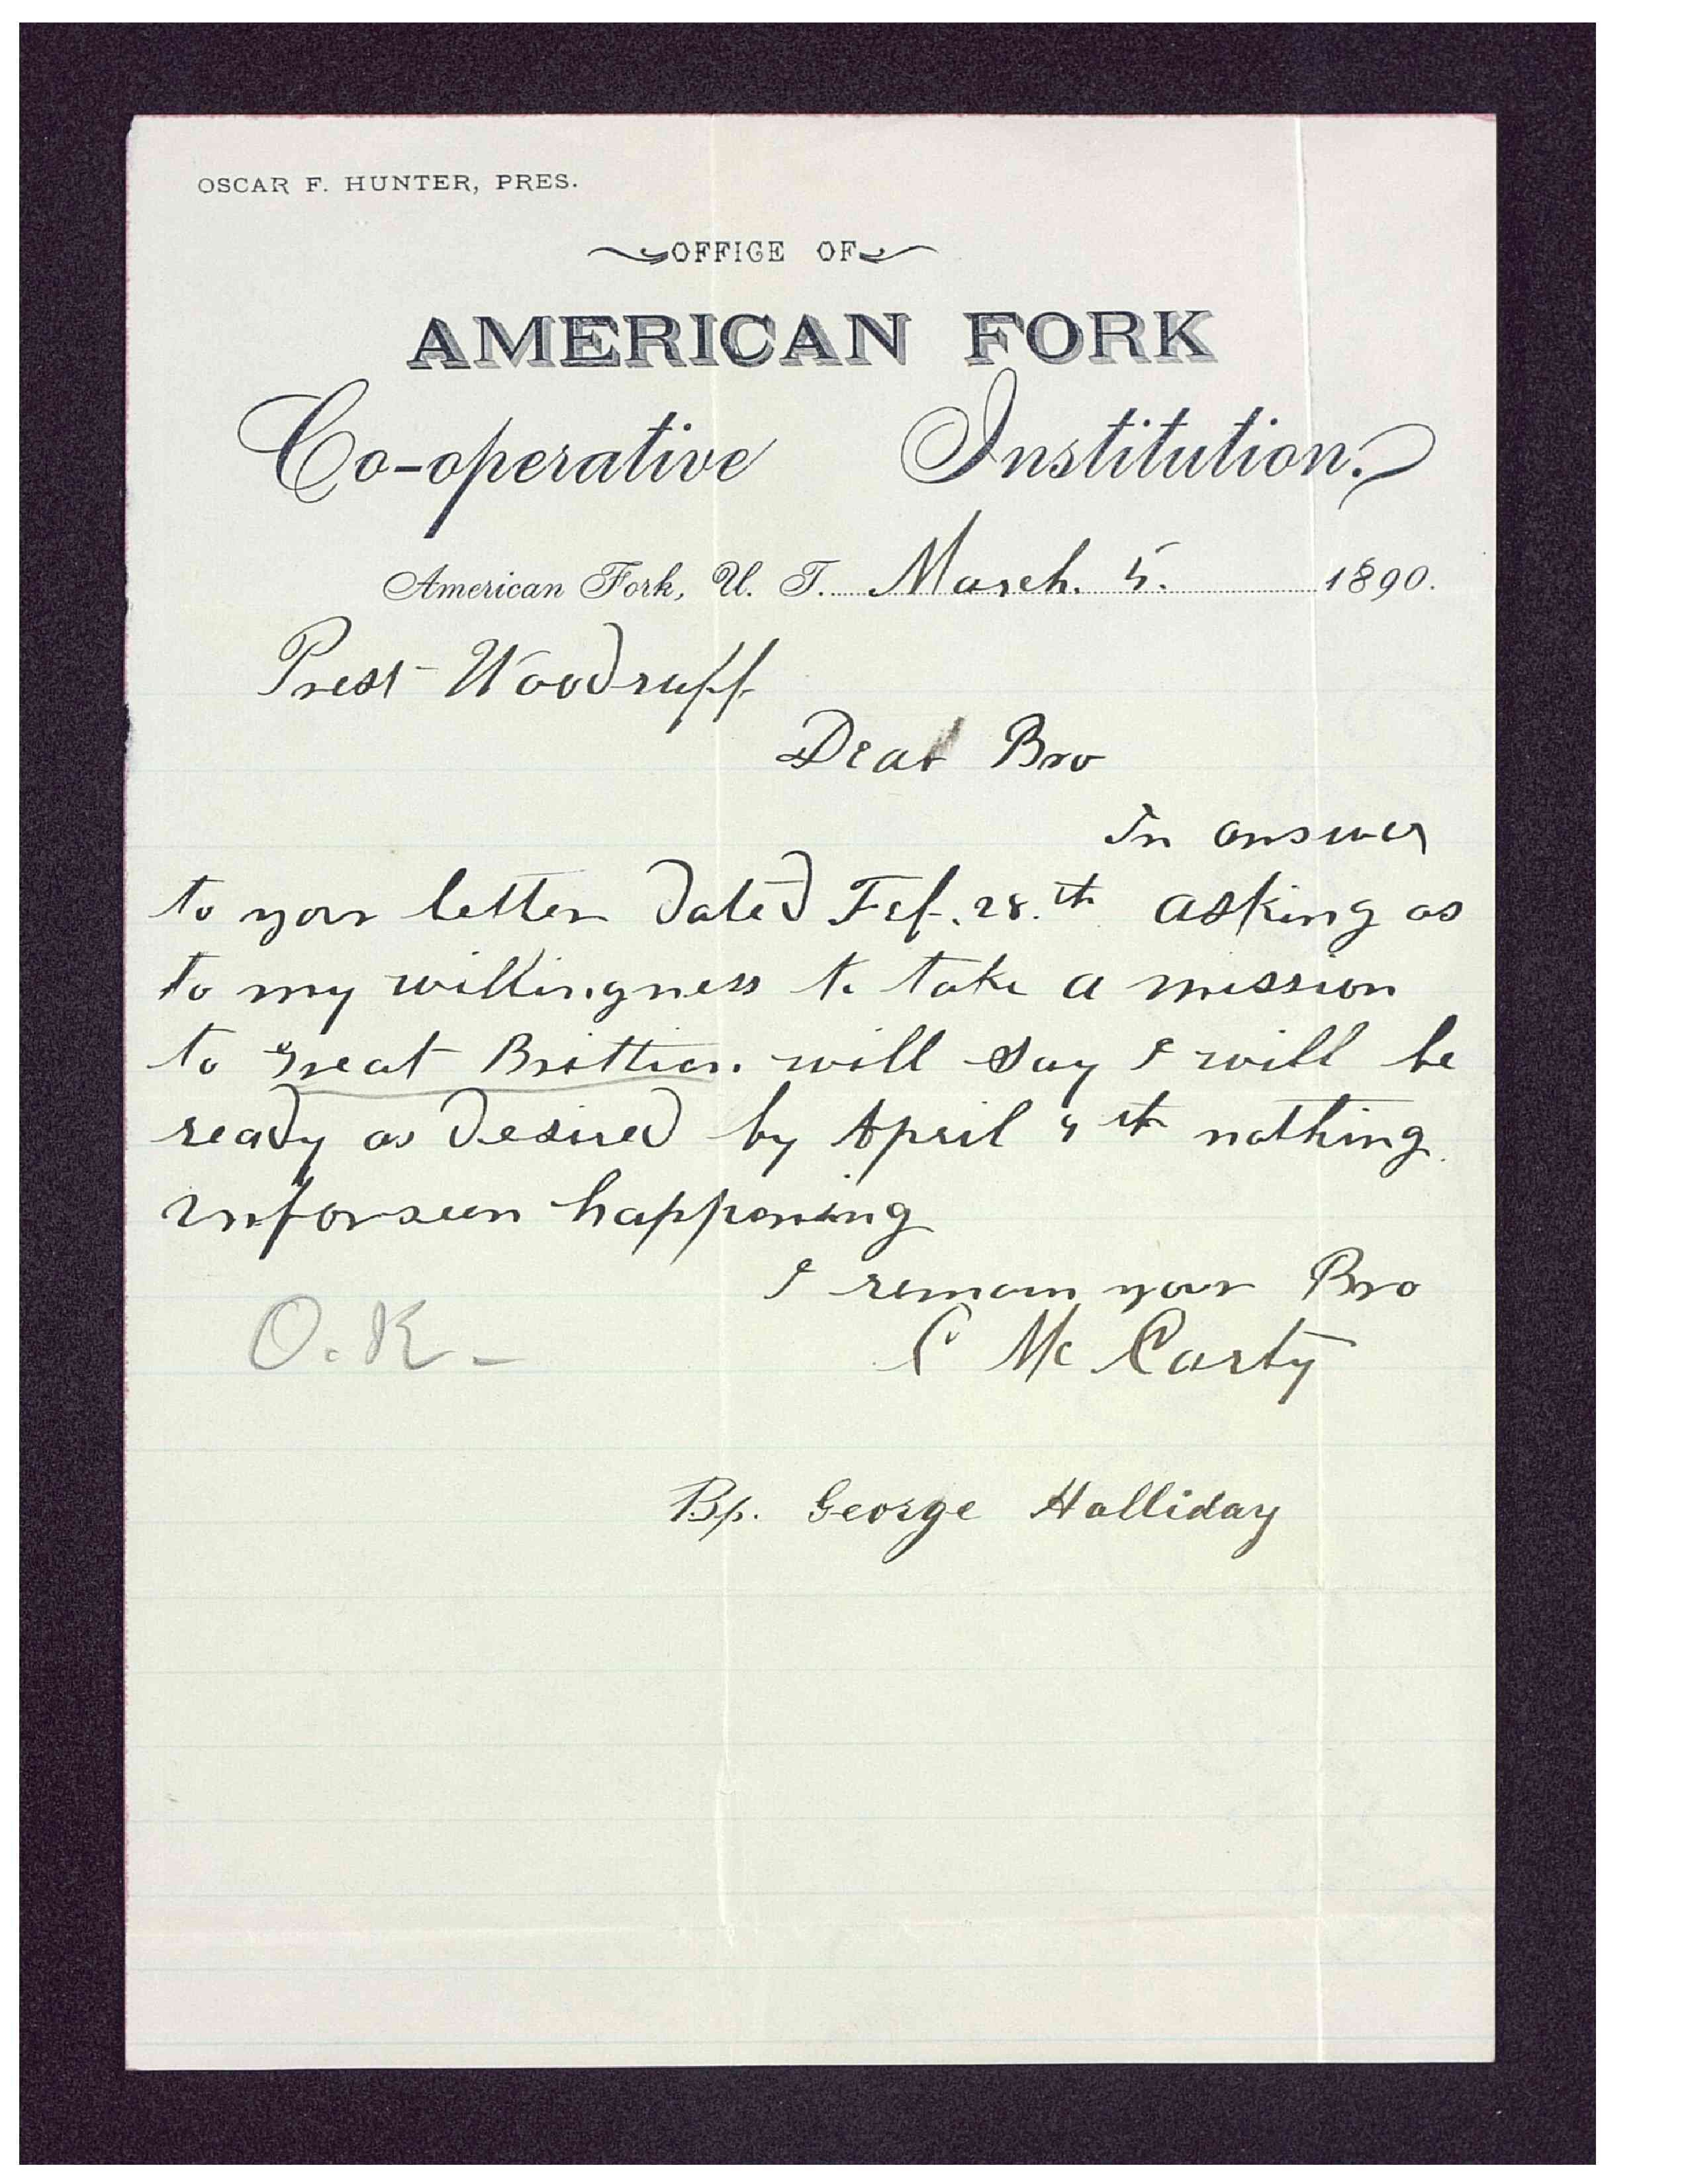 OSCAR F. HUNTER, PRES.
OFFICE OF
AMERICAN FORK
Co-operative Institution.
American Fork, U. T. March. 5. 1890.
Prest Woodruff
Dear Bro
In answer
to your letter dated Feb. 28.th asking as
to my willingness to take a mission
to Great Brittian. will say I will be
ready as desired by April th nothing
unforseen happening
I remain your Bro
O.K. - C McCarty
Bp. George Halliday